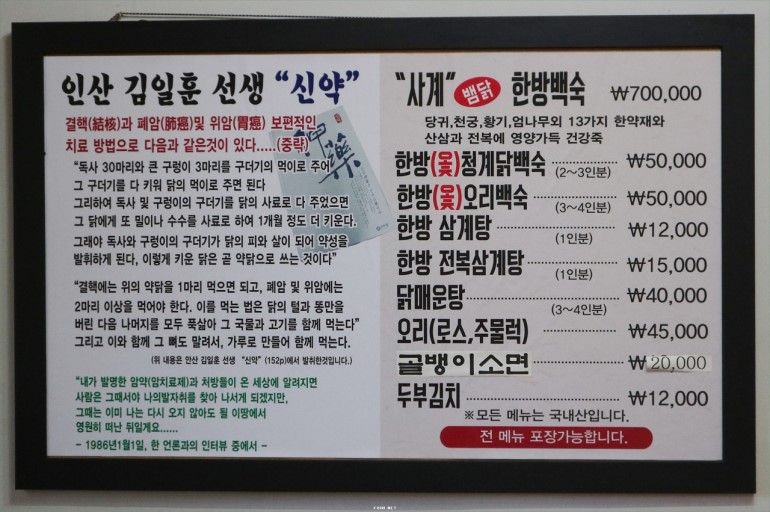 인산 김일훈 선생 “신약”
결핵(結核)과 폐암(肺癌)및 위암(胃癌) 보편적인
치료 방법으로 다음과 같은것이 있다.....(중략)
“독사 30마리와 큰 구렁이 3마리를 구더기의 먹이로 주어
그 구더기를 다 키워 닭의 먹이로 주면 된다
그리하여 독사 및 구렁이의 구더기를 닭의 사료로 다 주었으면
그 닭에게 또 밀이나 수수를 사료로 하여 1개월 정도 더 키운다.
그래야 독사와 구렁이의 구더기가 닭의 피와 살이 되어 약성을
발휘하게 된다, 이렇게 키운 닭은 곧 약닭으로 쓰는 것이다”
“결핵에는 위의 약닭을 1마리 먹으면 되고, 폐암 및 위암에는
2마리 이상을 먹어야 한다. 이를 먹는 법은 닭의 털과 똥만을
버린 다음 나머지를 모두 푹삶아 그 국물과 고기를 함께 먹는다”
그리고 이와 함께 그 뼈도 말려서, 가루로 만들어 함께 먹는다.
(위 내용은 인산 김일훈 선생 “신약” (152p)에서 발취한것입니다.)
“내가 발명한 암약(암치료제)과 처방들이 온 세상에 알려지면
사람은 그때서야 나의발자취를 찾아 나서게 되겠지만,
그때는 이미 나는 다시 오지 않아도 될 이땅에서
영원히 떠난 뒤일게요......
- 1986년1월1일, 한 언론과의 인터뷰 중에서 -
神藥
“사계” 뱀닭 한방백숙 ₩700,000
당귀,천궁,황기,엄나무외 13가지 한약재와
산삼과 전복에 영양가득 건강죽
한방(옻)청계닭백숙 (2~3인분) ₩50,000
한방(옻)오리백숙 (3~4인분) ₩50,000
한방 삼계탕 (1인분) ₩12,000
한방 전복삼계탕 (1인분) ₩15,000
닭매운탕 (3~4인분) ₩40,000
오리(로스,주물럭) ₩45,000
골뱅이소면 ₩20,000
두부김치 ₩12,000
※모든 메뉴는 국내산입니다.
전 메뉴 포장가능합니다.